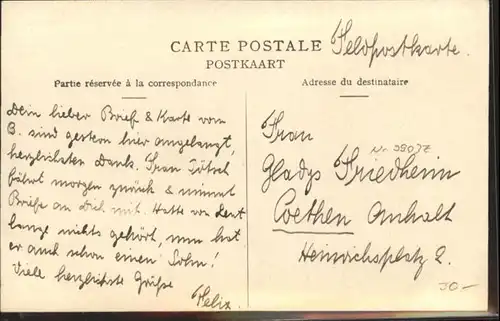 CARTE POSTALE
POSTKAART
Feldpostkarte.
Partie réservée à la correspondance
Adresse du destinataire
Dein lieber Brief & Karte vom
8. sind gestern hier angelangt,
herzlichsten Dank. Frau
fährt morgen zurück & nimmt
Briefe an Dich mit. Hatte von
lange nichts gehört, nun hat
er auch schon einen Sohn!
Viele herzlichste Grüße
Felix.
Frau
Gladys Friedheim
Coethen Anhalt
Heinrichsplatz 2.
30-